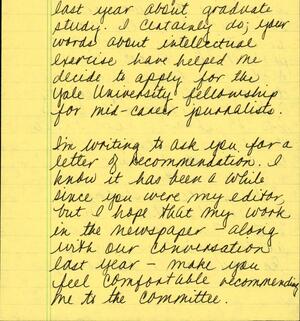 last year about graduate
study. I certainly do; your
words about intellectual
exercise have helped me
decide to apply for the
Yale University fellowship
for mid-career journalists.
I'm writing to ask you for a
letter of recommendation. I
know it has been a while
since you were my editor,
but I hope that my work
in the newspaper - along
with our conversation
last year - make you
feel comfortable recommending
me to the committee.